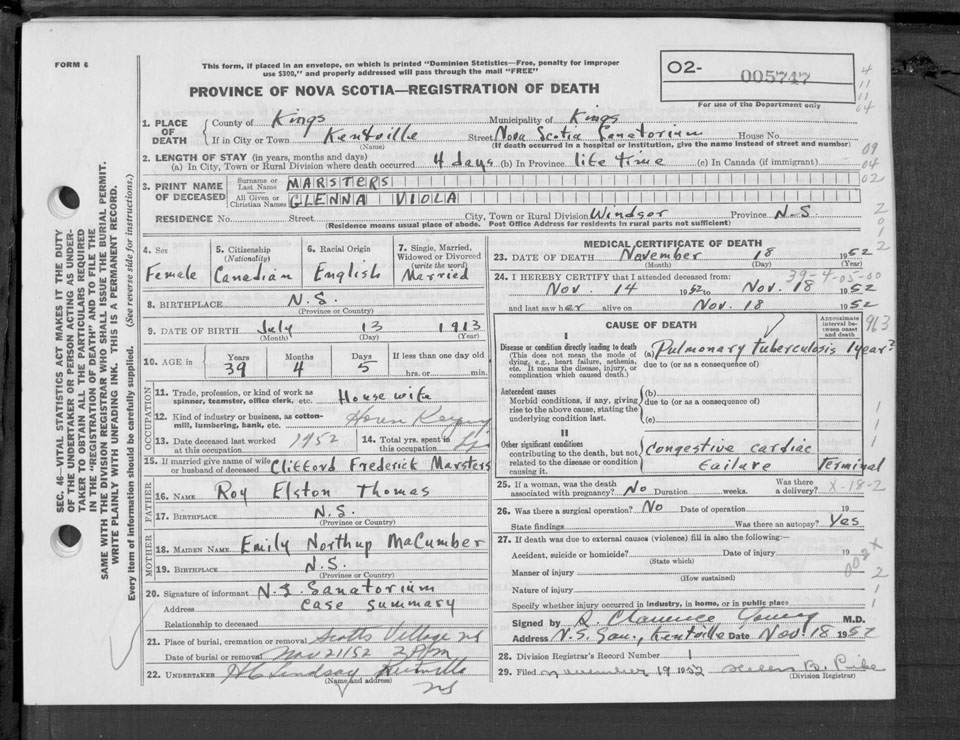 FORM 6
This form, if placed in an envelope, on which is printed "Dominion Statistics—Free, penalty for improper
use $300," and properly addressed will pass through the mail "FREE"
PROVINCE OF NOVA SCOTIA—REGISTRATION OF DEATH
02- 005747
For use of the Department only
4
11
11
04
09
04
02
2
0
1
2
SEC. 46— VITAL STATISTICS ACT MAKES IT THE DUTY
OF THE UNDERTAKER OR PERSON ACTING AS UNDER-
TAKER TO OBTAIN ALL THE PARTICULARS REQUIRED
IN THE "REGISTRATION OF DEATH" AND TO FILE THE
SAME WITH THE DIVISION REGISTRAR WHO SHALL ISSUE THE BURIAL PERMIT.
WRITE PLAINLY WITH UNFADING INK. THIS IS A PERMANENT RECORD.
Every item of information should be carefully supplied. (See reverse side for instructions.)
1. PLACE OF DEATH
County of Kings Municipality of Kings
If in City or Town Kentville Street Nova Scotia Sanatorium House No.
(Name) (If death occurred in a hospital or institution, give the name instead of street and number)
2. LENGTH OF STAY (in years, months and days)
(a) In City, Town or Rural Division where death occurred 4 days (b) In Province life time (c) In Canada (if immigrant)
3. PRINT NAME OF DECEASED
Surname or Last Name MARSTERS
All Given or Christian Names GLENNA VIOLA
RESIDENCE No. Street City, Town or Rural Division Windsor Province N.S.
(Residence means usual place of abode. Post Office Address for residents in rural parts not sufficient)
4. Sex Female
5. Citizenship (Nationality) Canadian
6. Racial Origin English
7. Single, Married, Widowed or Divorced (write the word) Married
8. BIRTHPLACE N.S.
(Province or Country)
9. DATE OF BIRTH July 13 1913
(Month) (Day) (Year)
10. AGE in Years 39 Months 4 Days 5 If less than one day old
hrs. or min.
OCCUPATION
11. Trade, profession, or kind of work as
spinner, teamster, office clerk, etc. House wife
12. Kind of industry or business, as cotton-
mill, lumbering, bank, etc.
13. Date deceased last worked at this occupation 1952 14. Total yrs. spent in this occupation
15. If married give name of wife or husband of deceased Clifford Frederick Marsters
FATHER
16. NAME Roy Elston Thomas
17. BIRTHPLACE N.S.
(Province or Country)
MOTHER
18. MAIDEN NAME Emily Northup MaCumber
19. BIRTHPLACE N.S.
(Province or Country)
20. Signature of informant N.S. Sanatorium
Address case summary
Relationship to deceased
21. Place of burial, cremation or removal Scotts Village NS
Date of burial or removal Nov 21/52 2 P.m.
22. UNDERTAKER
(Name and address) NS
MEDICAL CERTIFICATE OF DEATH
23. DATE OF DEATH November 18 1952
(Month) (Day) (Year)
39-4-05-00
24. I HEREBY CERTIFY that I attended deceased from:
Nov. 14 1952 to Nov. 18 1952
and last saw her alive on Nov. 18 1952
CAUSE OF DEATH
Approximate interval between onset and death
963
I
Disease or condition directly leading to death
(This does not mean the mode of dying, e.g., heart failure, asthenia, etc. It means the disease, injury, or complication which caused death.)
(a) Pulmonary tuberculosis 1 year?
due to (or as a consequence of)
Antecedent causes
Morbid conditions, if any, giving rise to the above cause, stating the underlying condition last.
(b)
due to (or as a consequence of)
(c)
II
Other significant conditions
contributing to the death, but not related to the disease or condition causing it.
Congestive cardiac
failure Terminal
1
1
1
25. If a woman, was the death associated with pregnancy? No Duration weeks. Was there a delivery? X-18-2
26. Was there a surgical operation? No Date of operation 19
State findings Was there an autopsy? Yes
27. If death was due to external causes (violence) fill in also the following:—
Accident, suicide or homicide? Date of injury 19
(State which)
Manner of injury
(How sustained)
Nature of injury
Specify whether injury occurred in industry, in home, or in public place
002 X
2
1
Signed by R. Clarence Young M.D.
Address N.S. San., Kentville Date Nov. 18 1952
28. Division Registrar's Record Number 1
29. Filed November 19 1952 Helen B.
(Division Registrar)